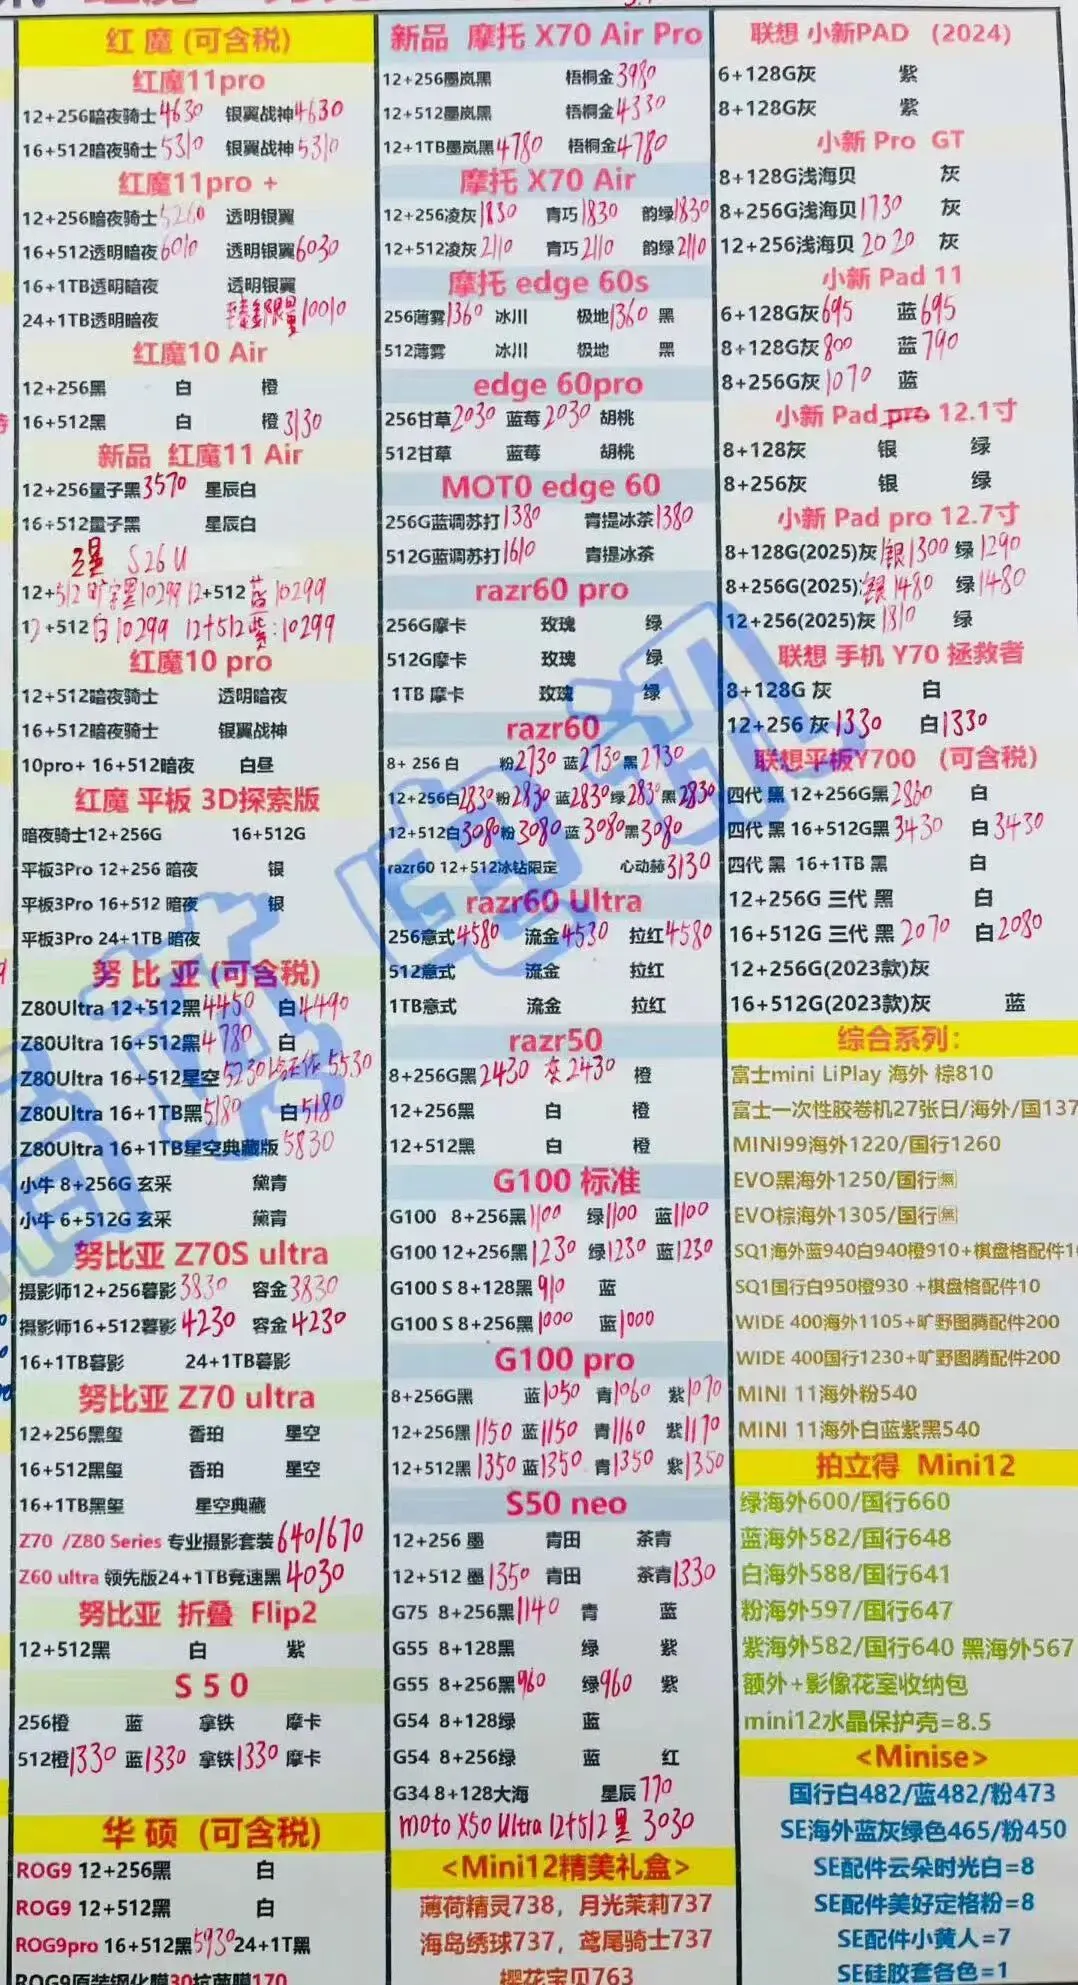 红 魔 (可含税)
红魔11pro
12+256暗夜骑士4630 银翼战神4630
16+512暗夜骑士5310 银翼战神5310
红魔11pro +
12+256暗夜骑士5260 透明银翼
16+512透明暗夜6010 透明银翼6030
16+1TB透明暗夜 透明银翼
24+1TB透明暗夜 限量10010
红魔10 Air
12+256黑 白 橙
16+512黑 白 橙3130
新品 红魔11 Air
12+256量子黑3570 星辰白
16+512量子黑 星辰白
三星 S26U
12+512 10299 12+512蓝10299
12+512白10299 12+512紫:10299
红魔10 pro
12+512暗夜骑士 透明暗夜
16+512暗夜骑士 银翼战神
10pro+ 16+512暗夜 白昼
红魔 平板 3D探索版
暗夜骑士12+256G 16+512G
平板3Pro 12+256 暗夜 银
平板3Pro 16+512 暗夜 银
平板3Pro 24+1TB 暗夜
努 比 亚 (可含税)
Z80Ultra 12+512黑4450 白4490
Z80Ultra 16+512黑4780 白
Z80Ultra 16+512星空5230 5530
Z80Ultra 16+1TB黑5180 白5180
Z80Ultra 16+1TB星空典藏版5830
小牛 8+256G 玄采 黛青
小牛 6+512G 玄采 黛青
努比亚 Z70S ultra
摄影师12+256暮影3830 容金3830
摄影师16+512暮影4230 容金4230
16+1TB暮影 24+1TB暮影
努比亚 Z70 ultra
12+256黑玺 香珀 星空
16+512黑玺 香珀 星空
16+1TB黑玺 星空典藏
Z70 /Z80 Series 专业摄影套装640/670
Z60 ultra 领先版24+1TB竞速黑4030
努比亚 折叠 Flip2
12+512黑 白 紫
S 5 0
256橙 蓝 拿铁 摩卡
512橙1330 蓝1330 拿铁1330 摩卡
华 硕 (可含税)
ROG9 12+256黑 白
ROG9 12+512黑 白
ROG9pro 16+512黑5930 24+1T黑
ROG9原装钢化膜30抗蓝膜170
新品 摩托 X70 Air Pro
12+256墨岚黑 梧桐金3980
12+512墨岚黑 梧桐金4330
12+1TB墨岚黑4780 梧桐金4780
摩托 X70 Air
12+256凌灰1830 青巧1830 韵绿1830
12+512凌灰2110 青巧2110 韵绿2110
摩托 edge 60s
256薄雾1360 冰川 极地1360 黑
512薄雾 冰川 极地 黑
edge 60pro
256甘草2030 蓝莓2030 胡桃
512甘草 蓝莓 胡桃
MOT0 edge 60
256G蓝调苏打1380 青提冰茶1380
512G蓝调苏打1610 青提冰茶
razr60 pro
256G摩卡 玫瑰 绿
512G摩卡 玫瑰 绿
1TB 摩卡 玫瑰 绿
razr60
8+ 256 白 粉2730 蓝2730 黑2730
12+256白2830 粉2830 蓝2830 绿2830 黑2830
12+512白3080 粉3080 蓝3080 黑3080
razr60 12+512冰钻限定 心动赫3130
razr60 Ultra
256意式4580 流金4530 拉红4580
512意式 流金 拉红
1TB意式 流金 拉红
razr50
8+256G黑2430 灰2430 橙
12+256黑 白 橙
12+512黑 白 橙
G100 标准
G100 8+256黑1100 绿1100 蓝1100
G100 12+256黑1230 绿1230 蓝1230
G100 S 8+128黑910 蓝
G100 S 8+256黑1000 蓝1000
G100 pro
8+256G黑 蓝1050 青1060 紫1070
12+256黑1150 蓝1150 青1160 紫1170
12+512黑1350 蓝1350 青1350 紫1350
S50 neo
12+256 墨 青田 茶青
12+512 墨1350 青田 茶青1330
G75 8+256黑1140 青 蓝
G55 8+128黑 绿 紫
G55 8+256黑960 绿960 紫
G54 8+128绿 蓝
G54 8+256绿 蓝 红
G34 8+128大海 星辰770
moto X50 Ultra 12+512黑 3030
<Mini12精美礼盒>
薄荷精灵738，月光茉莉737
海岛绣球737，鸢尾骑士737
樱花宝贝763
联想 小新PAD （2024）
6+128G灰 紫
8+128G灰 紫
小新 Pro GT
8+128G浅海贝 灰
8+256G浅海贝1730 灰
12+256浅海贝2020 灰
小新 Pad 11
6+128G灰695 蓝695
8+128G灰800 蓝790
8+256G灰1070 蓝
小新 Pad pro 12.1寸
8+128灰 银 绿
8+256灰 银 绿
小新 Pad pro 12.7寸
8+128G(2025)灰 银1300 绿1290
8+256G(2025) 银1480 绿1480
12+256(2025)灰1810 绿
联想 手机 Y70 拯救者
8+128G 灰 白
12+256 灰1330 白1330
联想平板Y700 （可含税）
四代 黑 12+256G黑2860 白
四代 黑 16+512G黑3430 白3430
四代 黑 16+1TB 黑 白
12+256G 三代 黑 白
16+512G 三代 黑2070 白2080
12+256G(2023款)灰
16+512G(2023款)灰 蓝
综合系列：
富士mini LiPlay 海外 棕810
富士一次性胶卷机27张日/海外/国137
MINI99海外1220/国行1260
EVO黑海外1250/国行🈚
EVO棕海外1305/国行🈚
SQ1海外蓝940白940橙910+棋盘格配件10
SQ1国行白950橙930 +棋盘格配件10
WIDE 400海外1105+旷野图腾配件200
WIDE 400国行1230+旷野图腾配件200
MINI 11海外粉540
MINI 11海外白蓝紫黑540
拍立得 Mini12
绿海外600/国行660
蓝海外582/国行648
白海外588/国行641
粉海外597/国行647
紫海外582/国行640 黑海外567
额外+影像花室收纳包
mini12水晶保护壳=8.5
<Minise>
国行白482/蓝482/粉473
SE海外蓝灰绿色465/粉450
SE配件云朵时光白=8
SE配件美好定格粉=8
SE配件小黄人=7
SE硅胶套各色=1